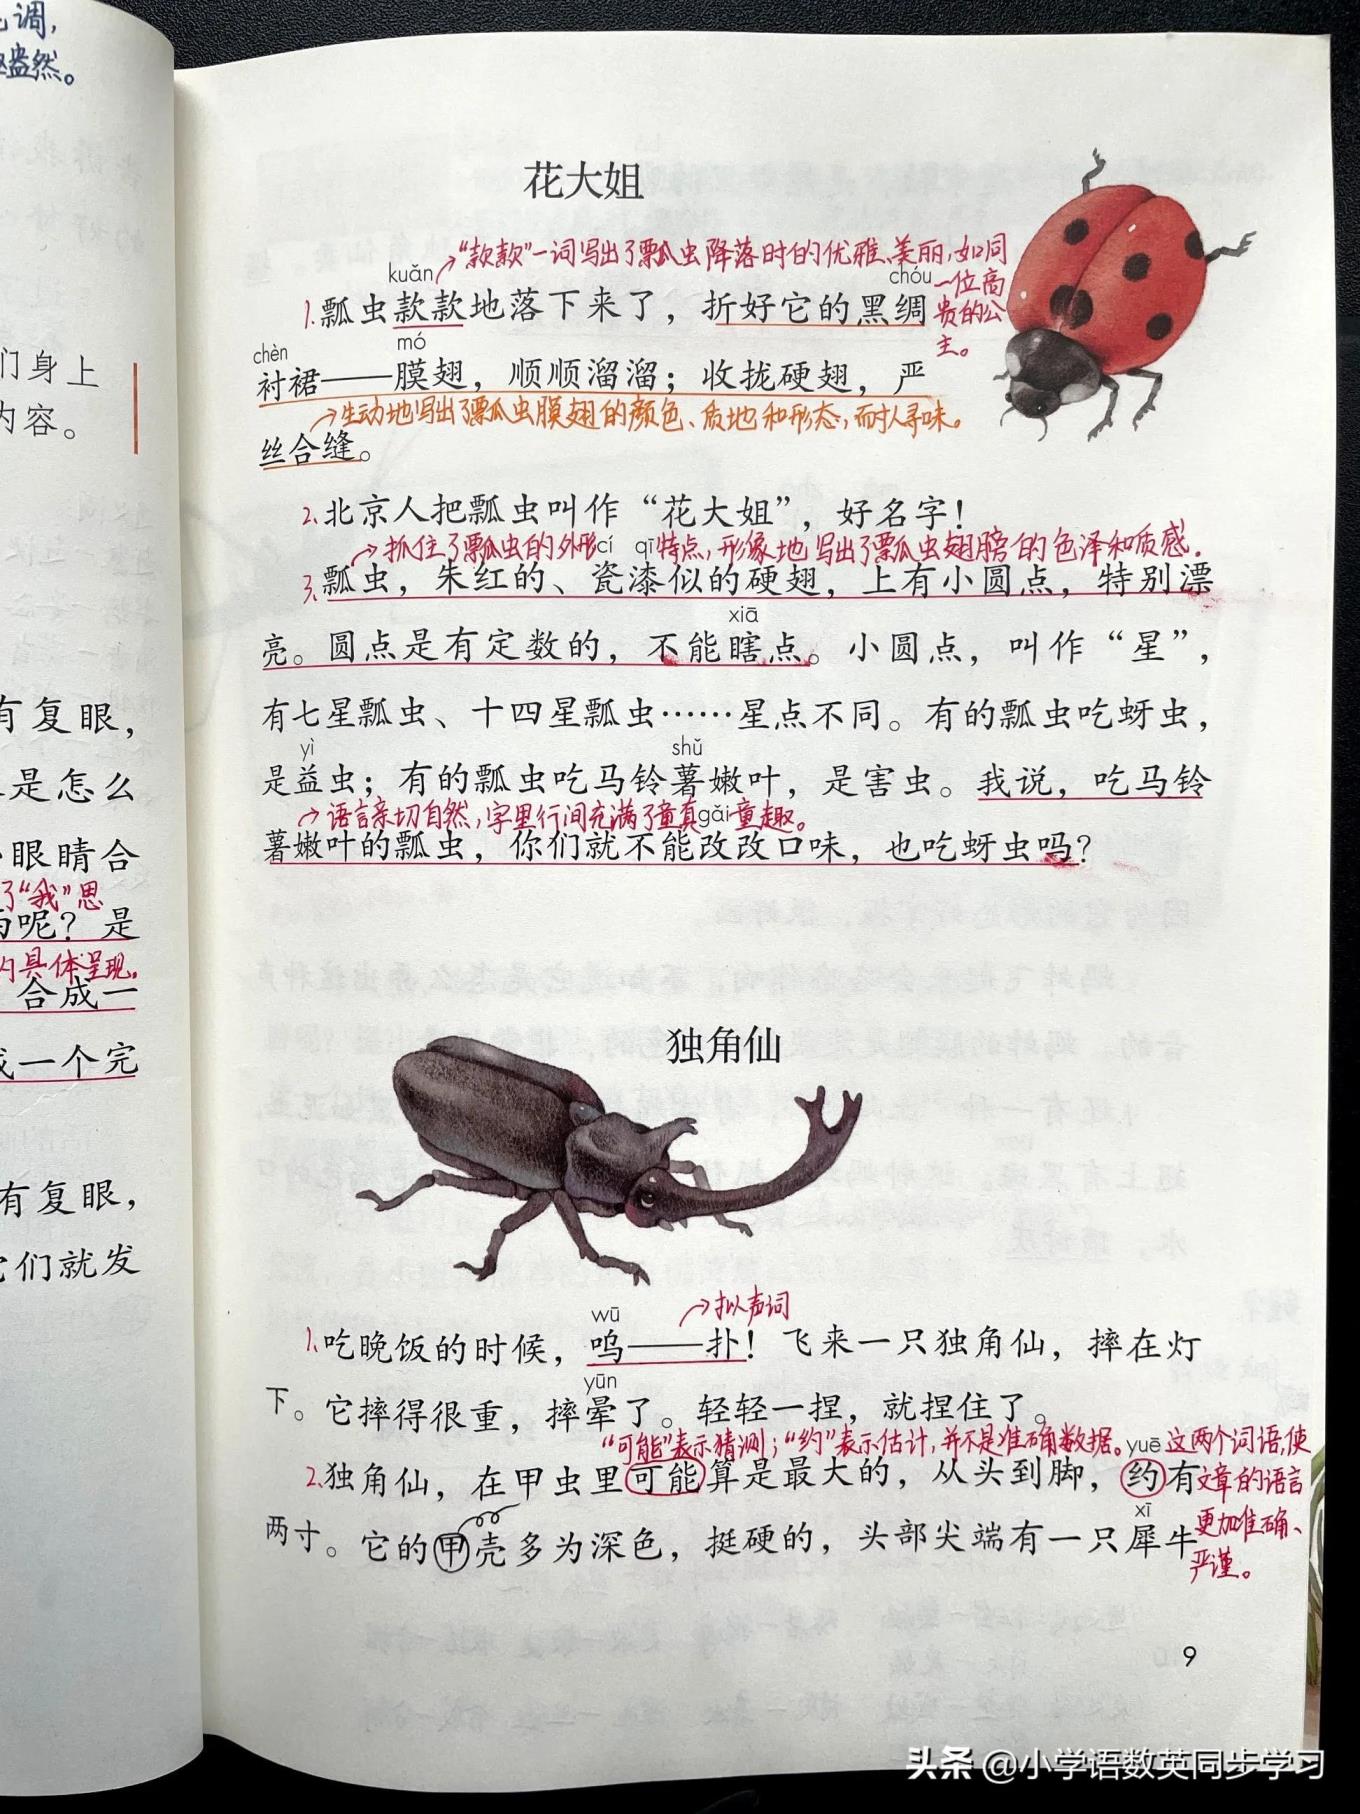 调，
盎然。
们身上
内容。
有复眼，
是怎么
眼睛合
了“我”思
呢？是
具体呈现。
合成一
一个完
有复眼，
们就发
花大姐
“款款”一词写出了瓢虫降落时的优雅、美丽，如同
一位高
贵的公
主。
kuǎn
chóu
1.瓢虫款款地落下来了，折好它的黑绸
chèn
mó
衬裙——膜翅，顺顺溜溜；收拢硬翅，严
生动地写出了瓢虫膜翅的颜色、质地和形态，耐人寻味。
丝合缝。
2.北京人把瓢虫叫作“花大姐”，好名字！
抓住了瓢虫的外形特点，形象地写出了瓢虫翅膀的色泽和质感。
cí qī
3.瓢虫，朱红的、瓷漆似的硬翅，上有小圆点，特别漂
xiā
亮。圆点是有定数的，不能瞎点。小圆点，叫作“星”，
有七星瓢虫、十四星瓢虫……星点不同。有的瓢虫吃蚜虫，
yì
shǔ
是益虫；有的瓢虫吃马铃薯嫩叶，是害虫。我说，吃马铃
语言亲切自然，字里行间充满了童真童趣。
gǎi
薯嫩叶的瓢虫，你们就不能改改口味，也吃蚜虫吗？
独角仙
拟声词
wū
1.吃晚饭的时候，呜——扑！飞来一只独角仙，摔在灯
yūn
下。它摔得很重，摔晕了。轻轻一捏，就捏住了。
“可能”表示猜测；“约”表示估计，并不是准确数据。这两个词语，使
文章的语言
更加准确、
严谨。
yuē
2.独角仙，在甲虫里可能算是最大的，从头到脚，约有
xī
两寸。它的甲壳多为深色，挺硬的，头部尖端有一只犀牛
9
头条 @小学语数英同步学习